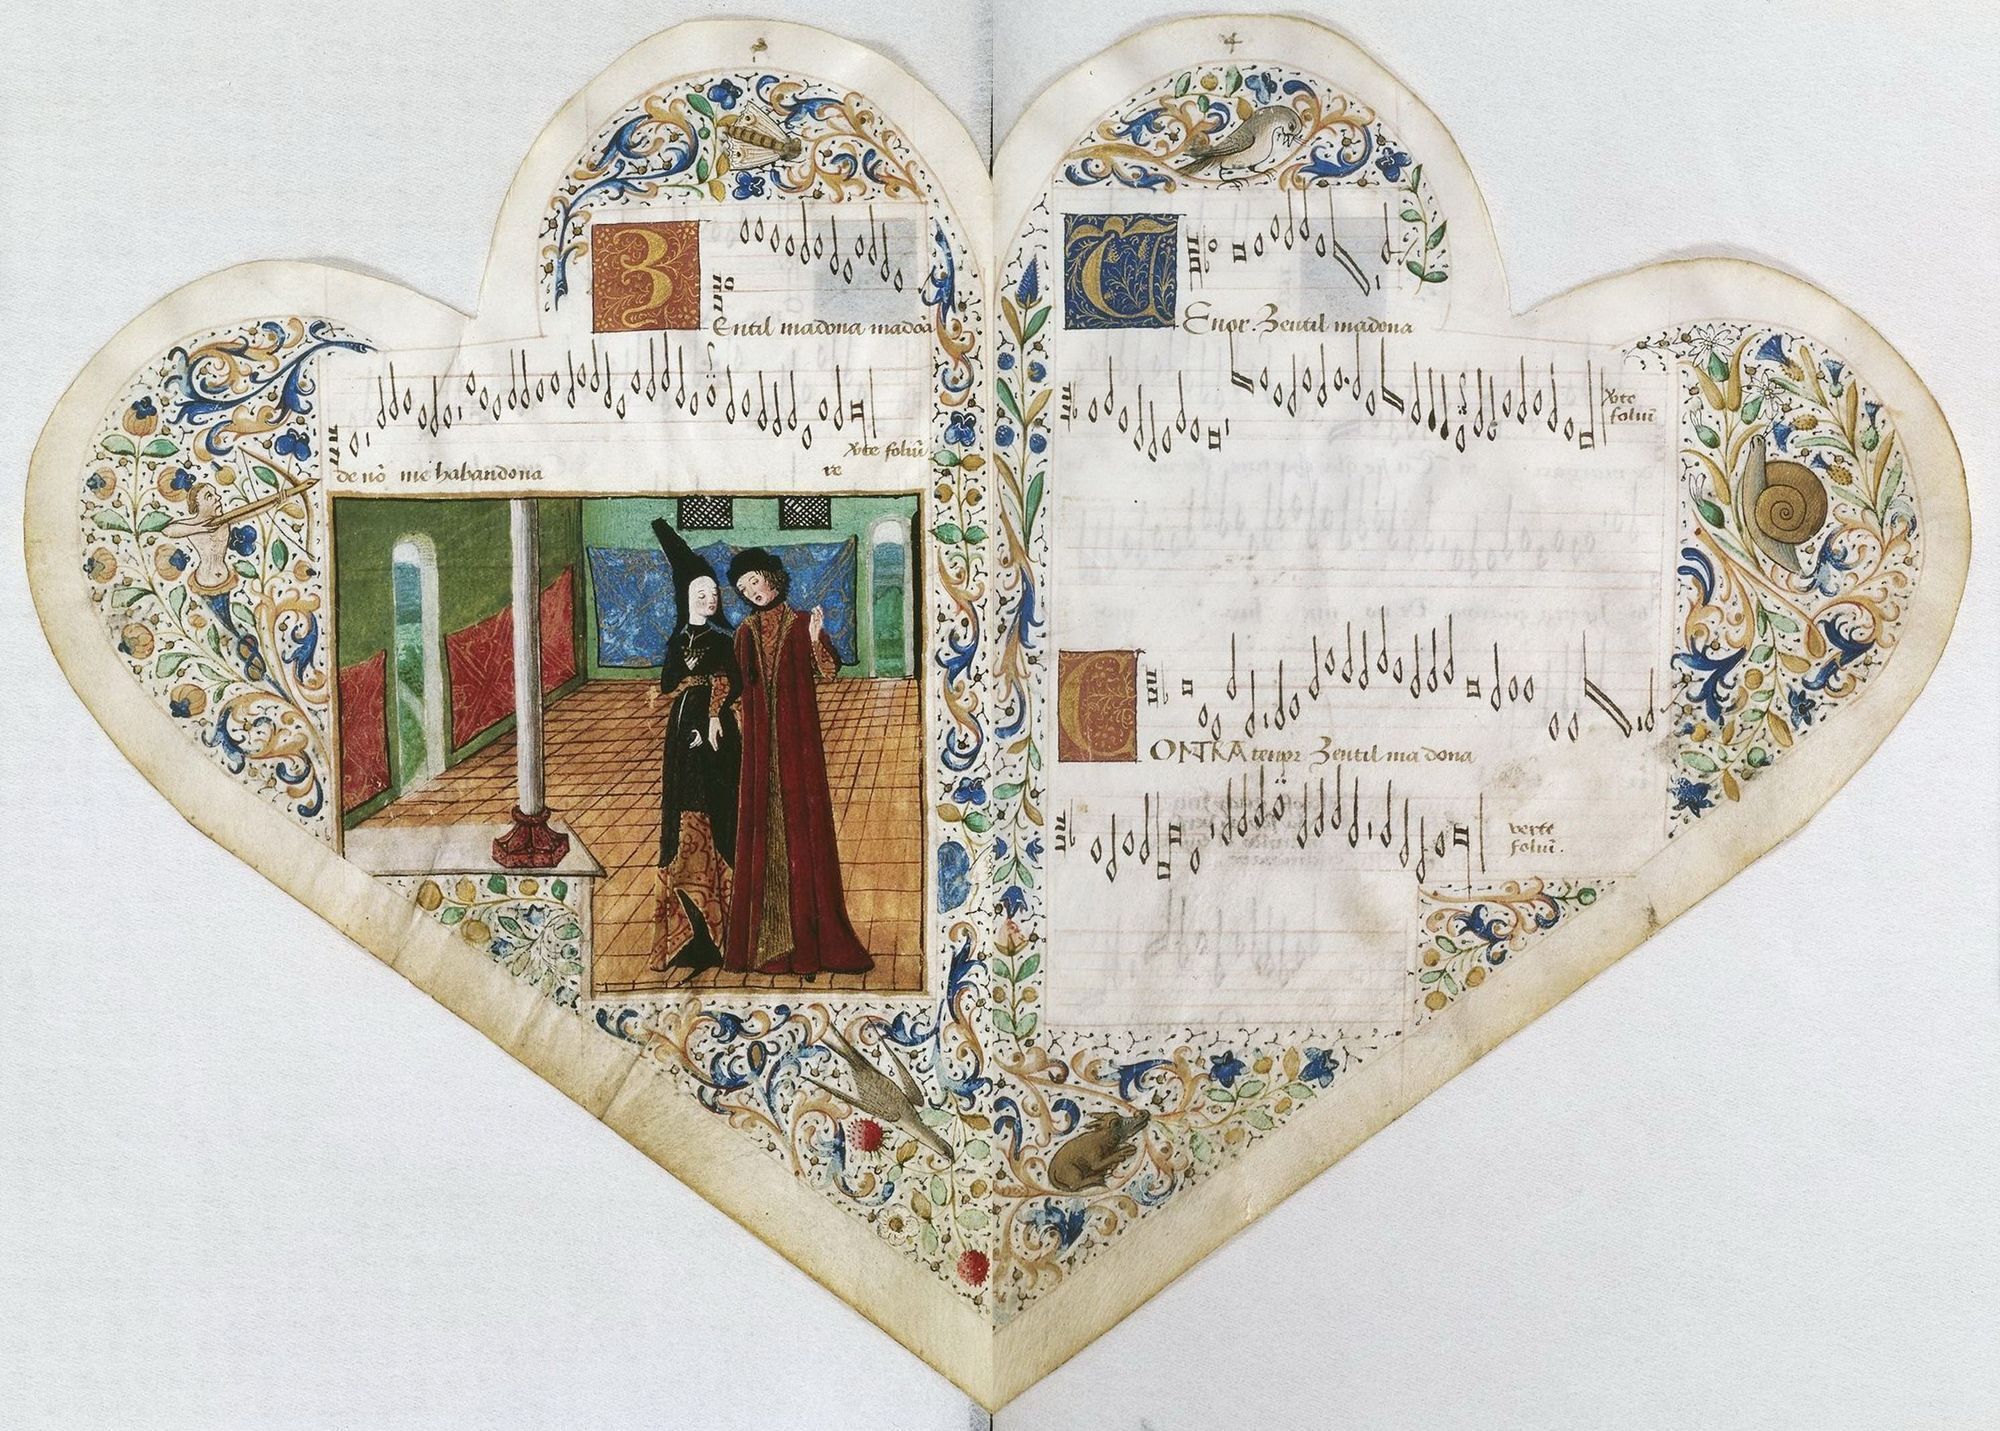 Zentil madona madõa
de nõ me habandona
re
Vte foliũ.
4
Tenor. Zentil madona
Vte
foliũ
CONTRA tenor Zentil madona
verte
foliũ.